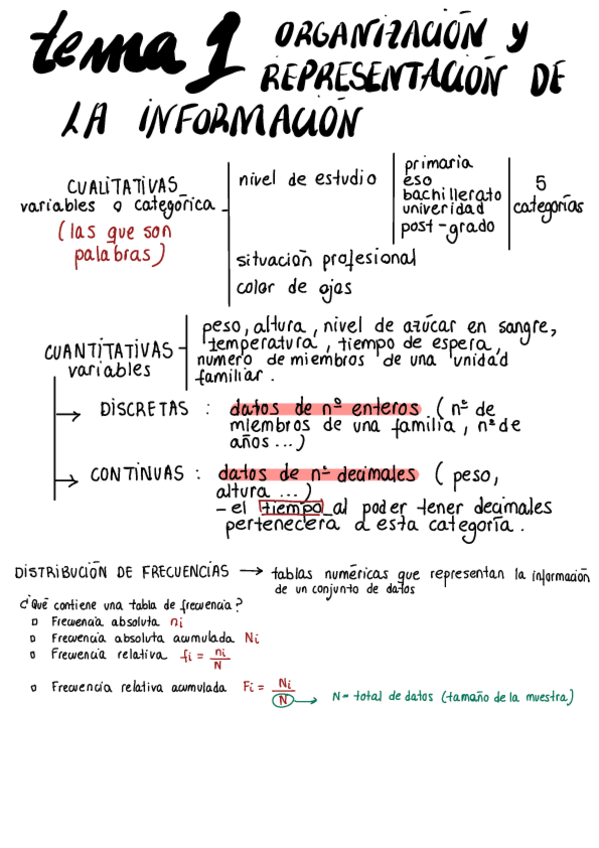 tema 1 ORGANIZACIÓN Y
REPRESENTACIÓN DE
LA INFORMACIÓN
CUALITATIVAS
variables o categórica
(las que son
palabras)
nivel de estudio
primaria
eso
bachillerato
univeridad
post-grado
5
categorías
situación profesional
color de ojos
CUANTITATIVAS
variables
peso, altura, nivel de azúcar en sangre,
temperatura, tiempo de espera,
numero de miembros de una unidad
familiar.
→ DISCRETAS : datos de nº enteros ( nº de
miembros de una familia, nº de
años ...)
→ CONTINUAS : datos de nº decimales ( peso,
altura ...)
- el tiempo al poder tener decimales
pertenecerá a esta categoría.
DISTRIBUCIÓN DE FRECUENCIAS → tablas numéricas que representan la información
de un conjunto de datos
¿Qué contiene una tabla de frecuencia?
▫ Frecuencia absoluta ni
▫ Frecuencia absoluta acumulada Ni
▫ Frecuencia relativa fi = ni/N
▫ Frecuencia relativa acumulada Fi = Ni/N
→ N= total de datos (tamaño de la muestra)